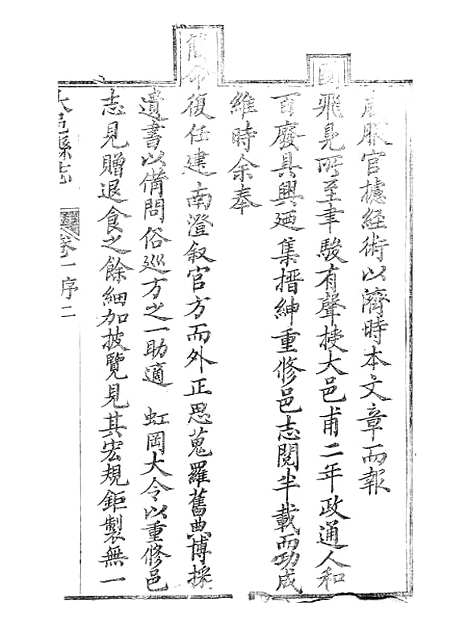 服官據經術以濟時本文章而報
國飛舄所至聿駿有聲捧大邑甫二年政通人和
百廢具興廼集搢紳重修邑志閱半載而功成
維時余奉
簡命復任建南澄叙官方而外正思蒐羅舊典博採
遺書以備問俗巡方之一助適 虹岡大令以重修邑
志見贈退食之餘細加披覽見其宏規鉅製無一
大邑縣志 卷一序二